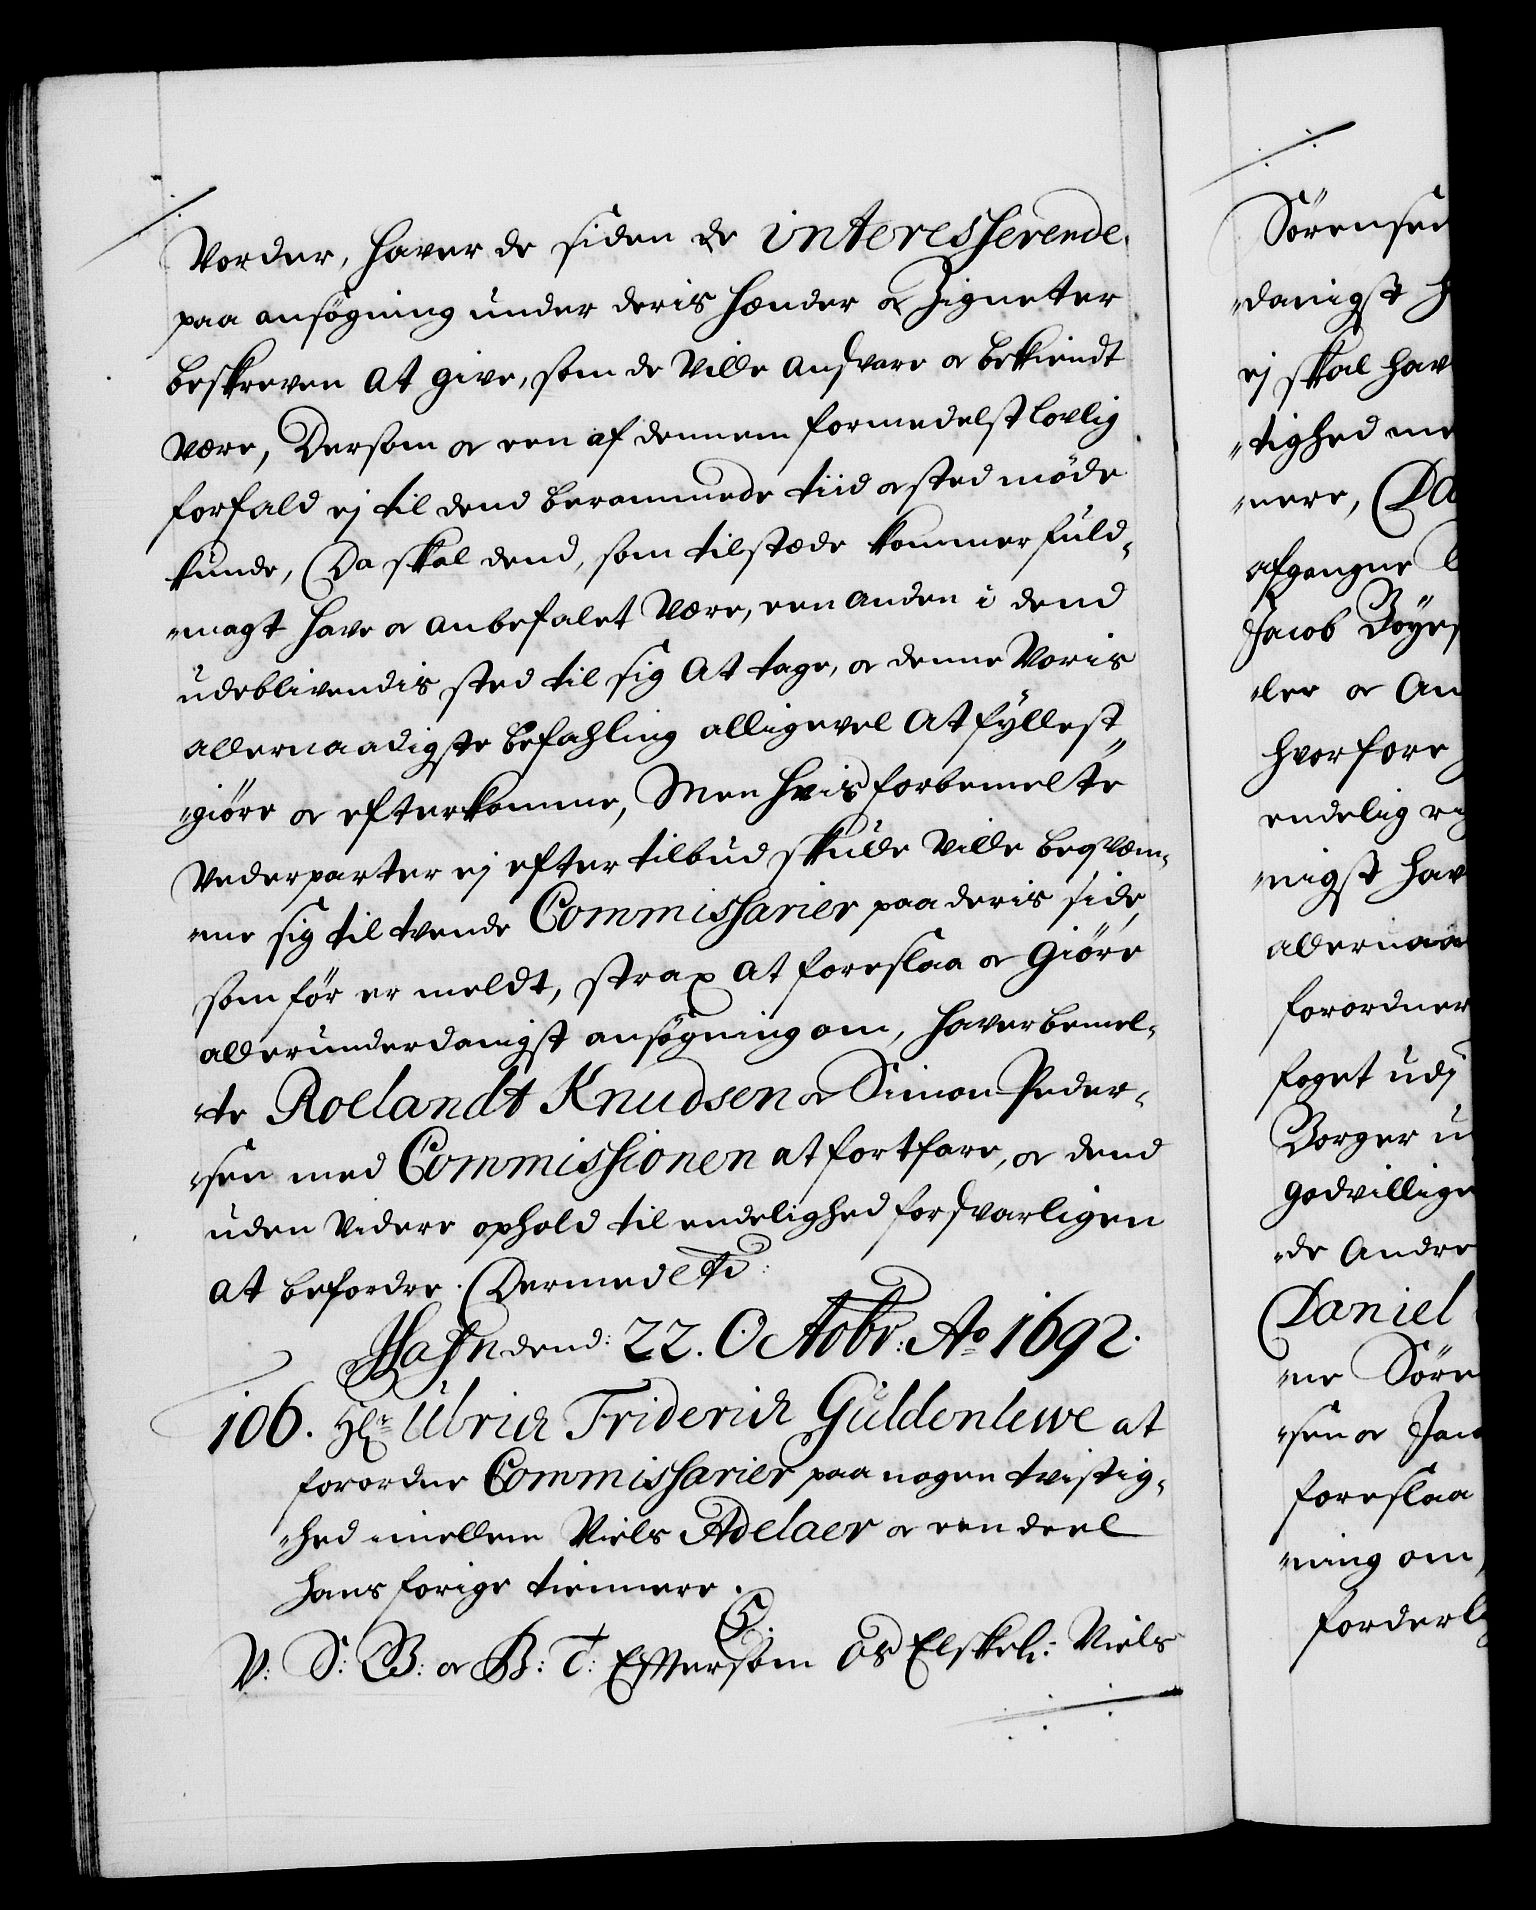 Vorder, haver de siden de interesserende
paa ansøgning under deris hænder og Zigneter
beskreven at give, som de ville ansvare og bekiendt
være, Dersom og een af dennem formedelst lovlig
forfald ej til dend berammede tiid og sted møde
kunde, Da skal dend, som tilstæde kommer fuld-
magt have og anbefalet være, een anden i dend
udeblivendis sted til sig at tage, og denne voris
allernaadigste befahling alligevel at fyllest-
giöre og efterkomme, Men hvis forbemelte
Vederparter ej efter tilbud skulle ville beqvem-
me sig til tvende Commissarier paa deris side,
som før er meldt, strax at foreslaa og Giöre
allerunderdanigst ansøgning om, haver bemel-
te Roelandt Knudsen og Simon Peder-
sen med Commissionen at fortfare, og dend
uden videre ophold til endelighed forsvarligen
at befordre. Dermed etc:
Hafn dend: 22. Octobr: Ao 1692.
106. Hr Ulrich Friderich Güldenlewe at
forordne Commissarier paa nogen tvistig-
hed imellem Niels Adelaer og een deel
hans forige tiennere.
C5.
V: S: G: og B: T: Eftersom Os Elskel: Niels
Sörensen
danigst h
ej skal hav
tighed me
nere, Da
afgangne
Jacob Böyes
ler og An
hvorfore
endelig
nigst hav
allernaa
forordner
foget udj
Borger u
godvillige
de Andre
Daniel
ne Söre
sen og Jac
foreslaa
ning om,
forderl